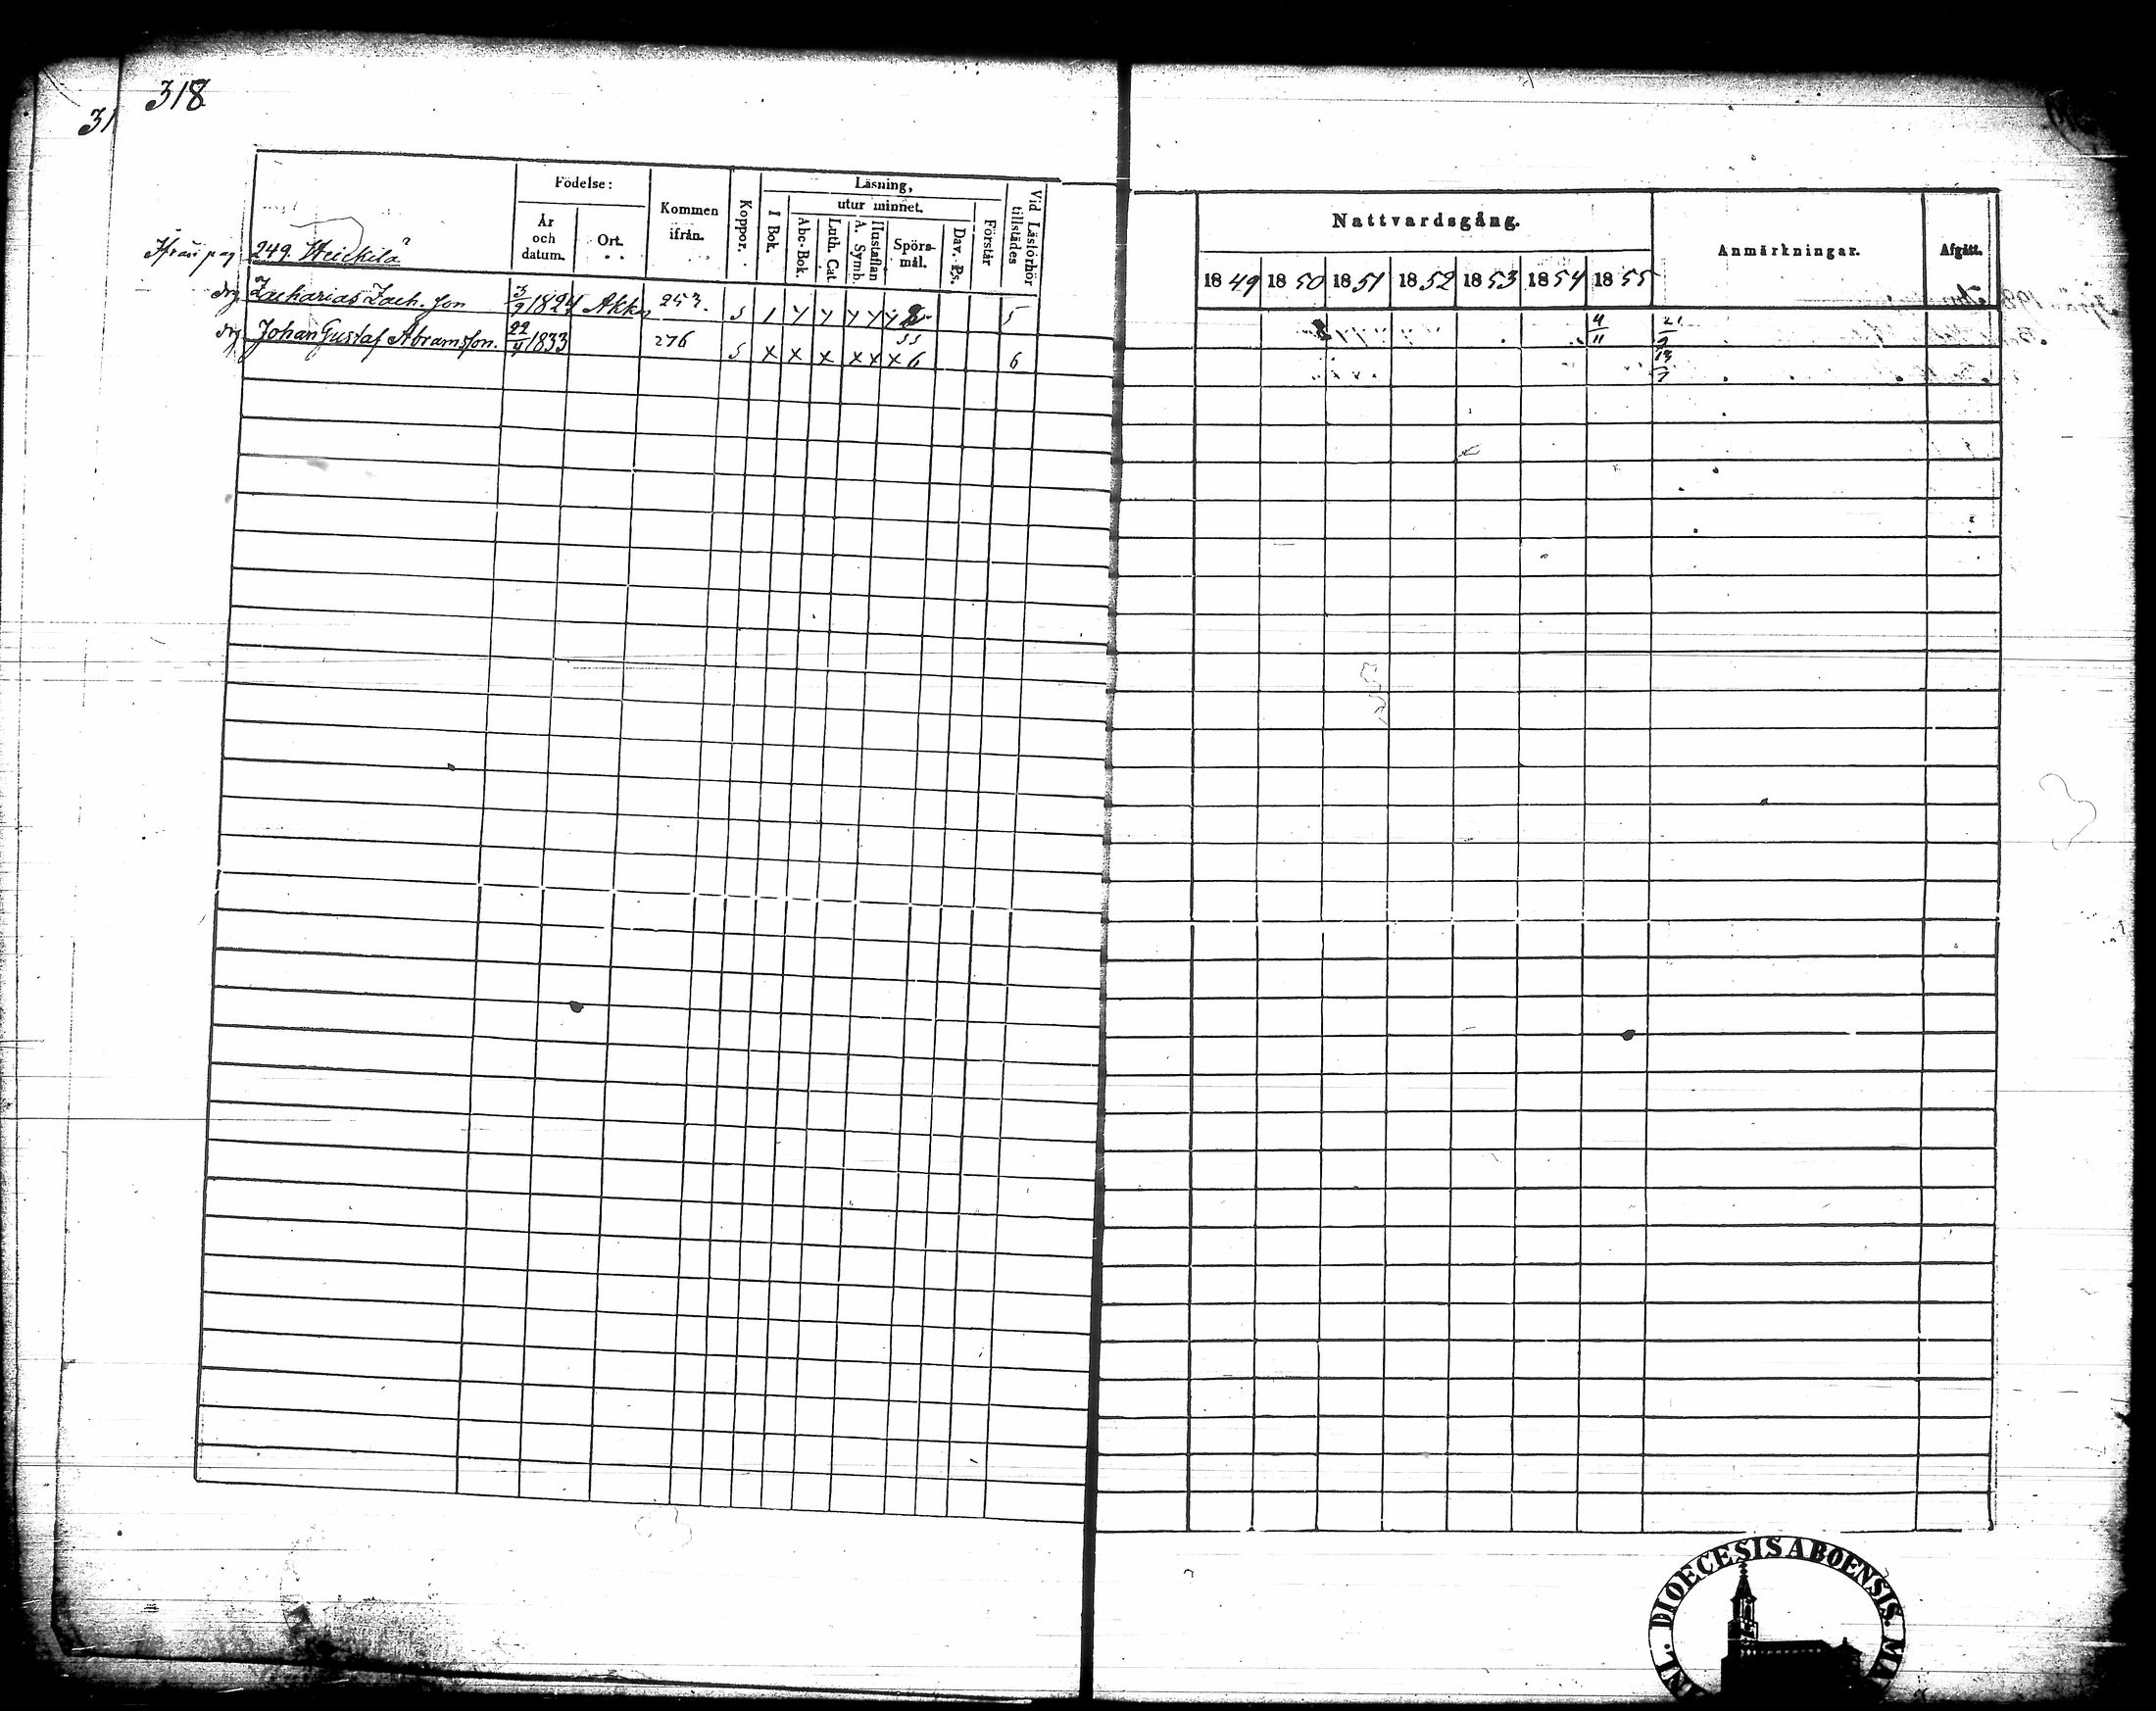 318
31
Födelse:
År och datum.
Ort.
Kommen ifrån.
Koppor.
Läsning,
I Bok.
utur minnet.
Abc-Bok.
Luth. Cat.
A. Symb.
Hustaflan
Spörs-mål.
Dav. Ps.
Förstår
Vid Läsförhör tillstädes
Ifrån pag 249. Heickilä
drg Zacharias Zach. son 3/9 1824 253. s 1 y y y y y 5
drg Johan Gustaf Abramsson. 22/9 1833 276 s x x x x x x 6 6
Nattvardsgång.
Anmärkningar.
Afgått.
1849 1850 1851 1852 1853 1854 1855
4/11
DIOECESIS ABOENSIS.